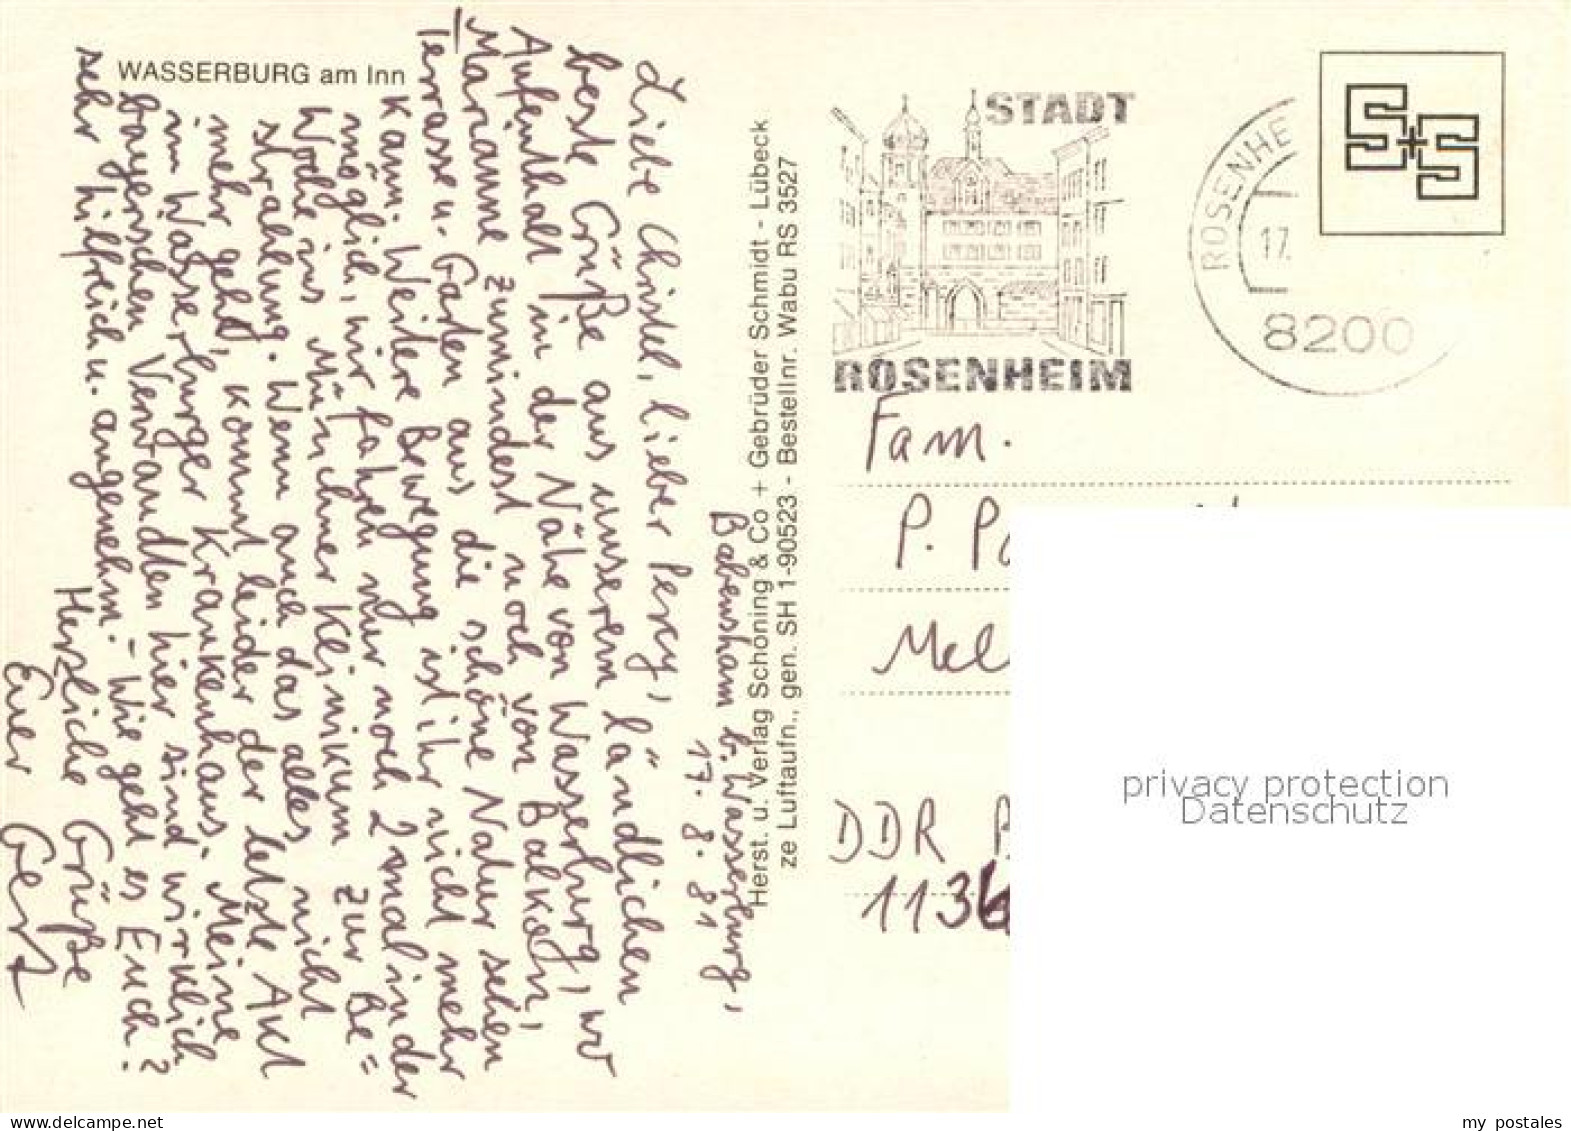 WASSERBURG am Inn
Babensham b. Wasserburg,
17. 8. 81
Liebe Christel, lieber Percy,
beste Grüße aus unserem ländlichen
Aufenthalt in der Nähe von Wasserburg, wo
Marianne zumindest noch von Balkon,
Terrasse u. Garten aus die schöne Natur sehen
kann. Weitere Bewegung ist ihr nicht mehr
möglich, wir fahren nur noch 2 mal in der
Woche ins Münchner Klinikum zur Be=
strahlung. Wenn auch das alles nicht
mehr geht, kommt leider der letzte Akt
im Wasserburger Krankenhaus. Meine
bayerischen Verwandten hier sind wirklich
sehr hilfreich u. angenehm. - Wie geht es Euch?
Herzliche Grüße
Euer Gert
Herst. u. Verlag Schöning & Co + Gebrüder Schmidt - Lübeck
ze Luftaufn., gen. SH 1-90523 - Bestellnr. Wabu RS 3527
STADT
ROSENHEIM
ROSENHE
17.
8200
S+S
Fam.
P.
DDR
privacy protection
Datenschutz
my postales
www.delcampe.net